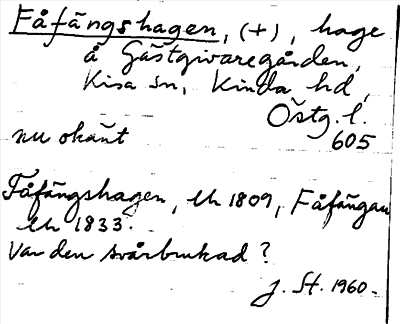 Fåfängshagen, (+), hage
å Gästgivaregården,
Kisa sn, Kinda hd,
Östg. l.
nu okänt 605
Fåfängshagen, Uh 1809, Fåfängan
Uh 1833.
Var den svårbrukad?
J. St. 1960.